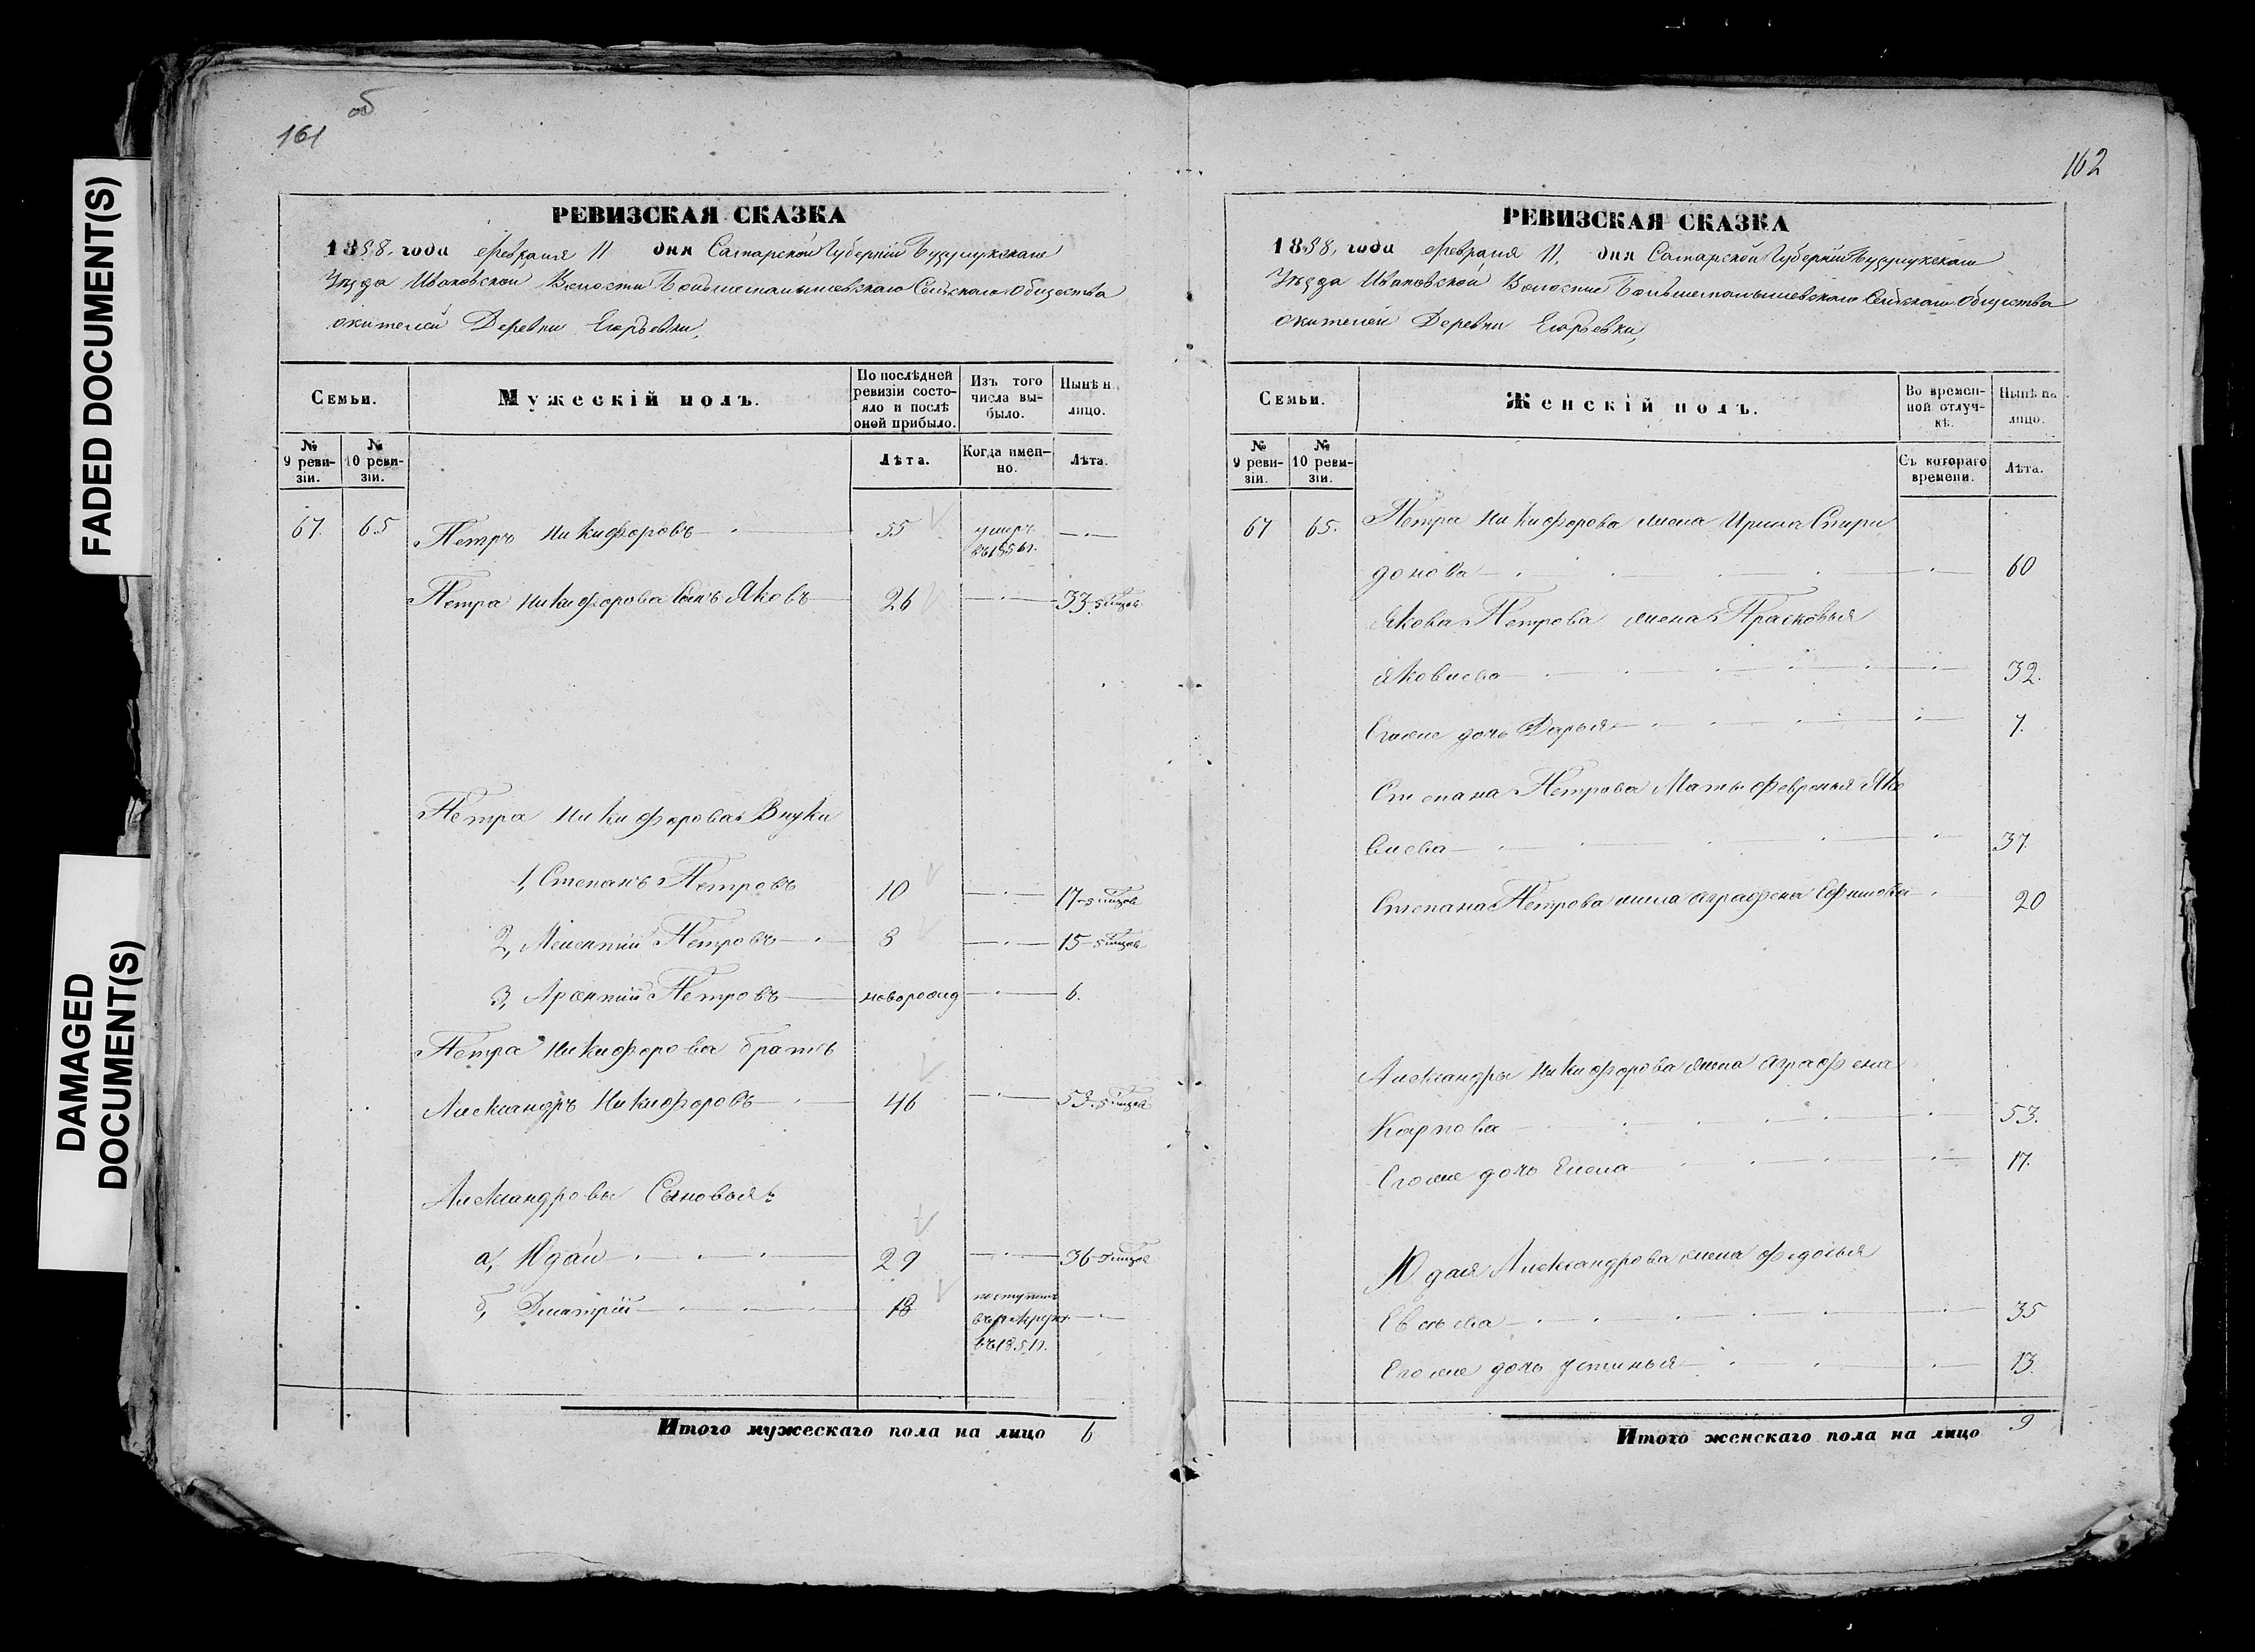 FADED DOCUMENT(S)
DAMAGED
DOCUMENT(S)
об
161
РЕВИЗСКАЯ СКАЗКА
1858, года Февраля 11 дня Самарской Губерніи Бузулукскаго
Уѣзда Ивановской Волости Большемалышевскаго Сельскаго Общества
жителей Деревни Егорьевки,
Семьи.
Мужескій полъ.
По послѣдней
ревизіи состо-
яло и послѣ
оной прибыло.
Изъ того
числа вы-
было.
Нынѣ н
лицо.
№
9 реви-
зіи.
№
10 реви-
зіи.
Лѣта.
Когда имен-
но.
Лѣта.
67. 65 Петръ Никифоровъ 55 умеръ
въ 1856 г.
Петра Никифорова Сынъ Яковъ 26 33
Петра Никифорова Внуки
1, Степанъ Петровъ 10 17
2, Мелентій Петровъ 8 15
3, Арсентій Петровъ новорожд 6.
Петра Никифорова братъ
Александръ Никифоровъ 46 53
Александровы Сыновья:
а, Юдай 29 36
б, Дмитрій 18 поступилъ
въ рекруты
въ 1851 г.
Итого мужескаго пола на лицо 6
162
РЕВИЗСКАЯ СКАЗКА
1858, года Февраля 11, дня Самарской Губерніи Бузулукскаго
Уѣзда Ивановской Волости Большемалышевскаго Сельскаго Общества
жителей Деревни Егорьевки,
Семьи.
Женскій полъ.
Во времен-
ной отлуч-
кѣ.
Нынѣ на
лицо.
№
9 реви-
зіи.
№
10 реви-
зіи.
Съ котораго
времени.
Лѣта.
67 65. Петра Никифорова жена Ирина Спири
донова 60
Якова Петрова жена Прасковья
Яковлева 32.
Егоже дочь Дарья 7.
Степана Петрова Мать Февронья Яко
влева 37.
Степана Петрова жена Аграфена Ефимова 20
Александры Никифорова жена Аграфена
Карпова 53.
Егоже дочь Елена 17.
Юдая Александрова жена Федосья
Евсѣева 35
Егоже дочь Устинья 13.
Итого женскаго пола на лицо 9